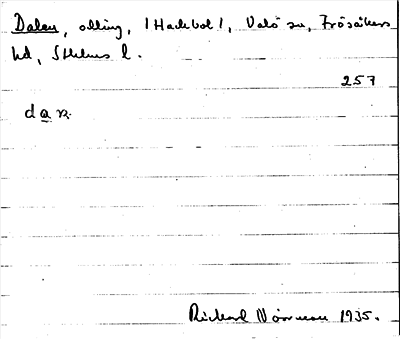 Dalen, olling, /Hackbol/, Valö sn, Frösåkers
hd, Sthlms l.
257
daṉ
Rickard Norrman 1935.